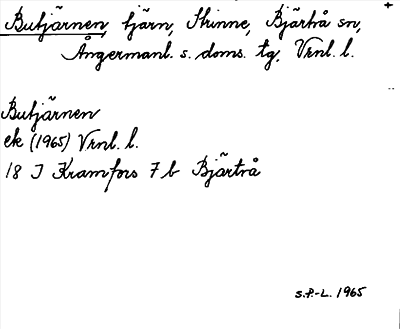 Butjärnen, tjärn, Skinne, Bjärtrå sn,
Ångermanl. s. doms. tg. Vrnl. l.
Butjärnen
ek (1965) Vrnl. l.
18 J Kramfors 7 b Bjärtrå
S.P.-L. 1965